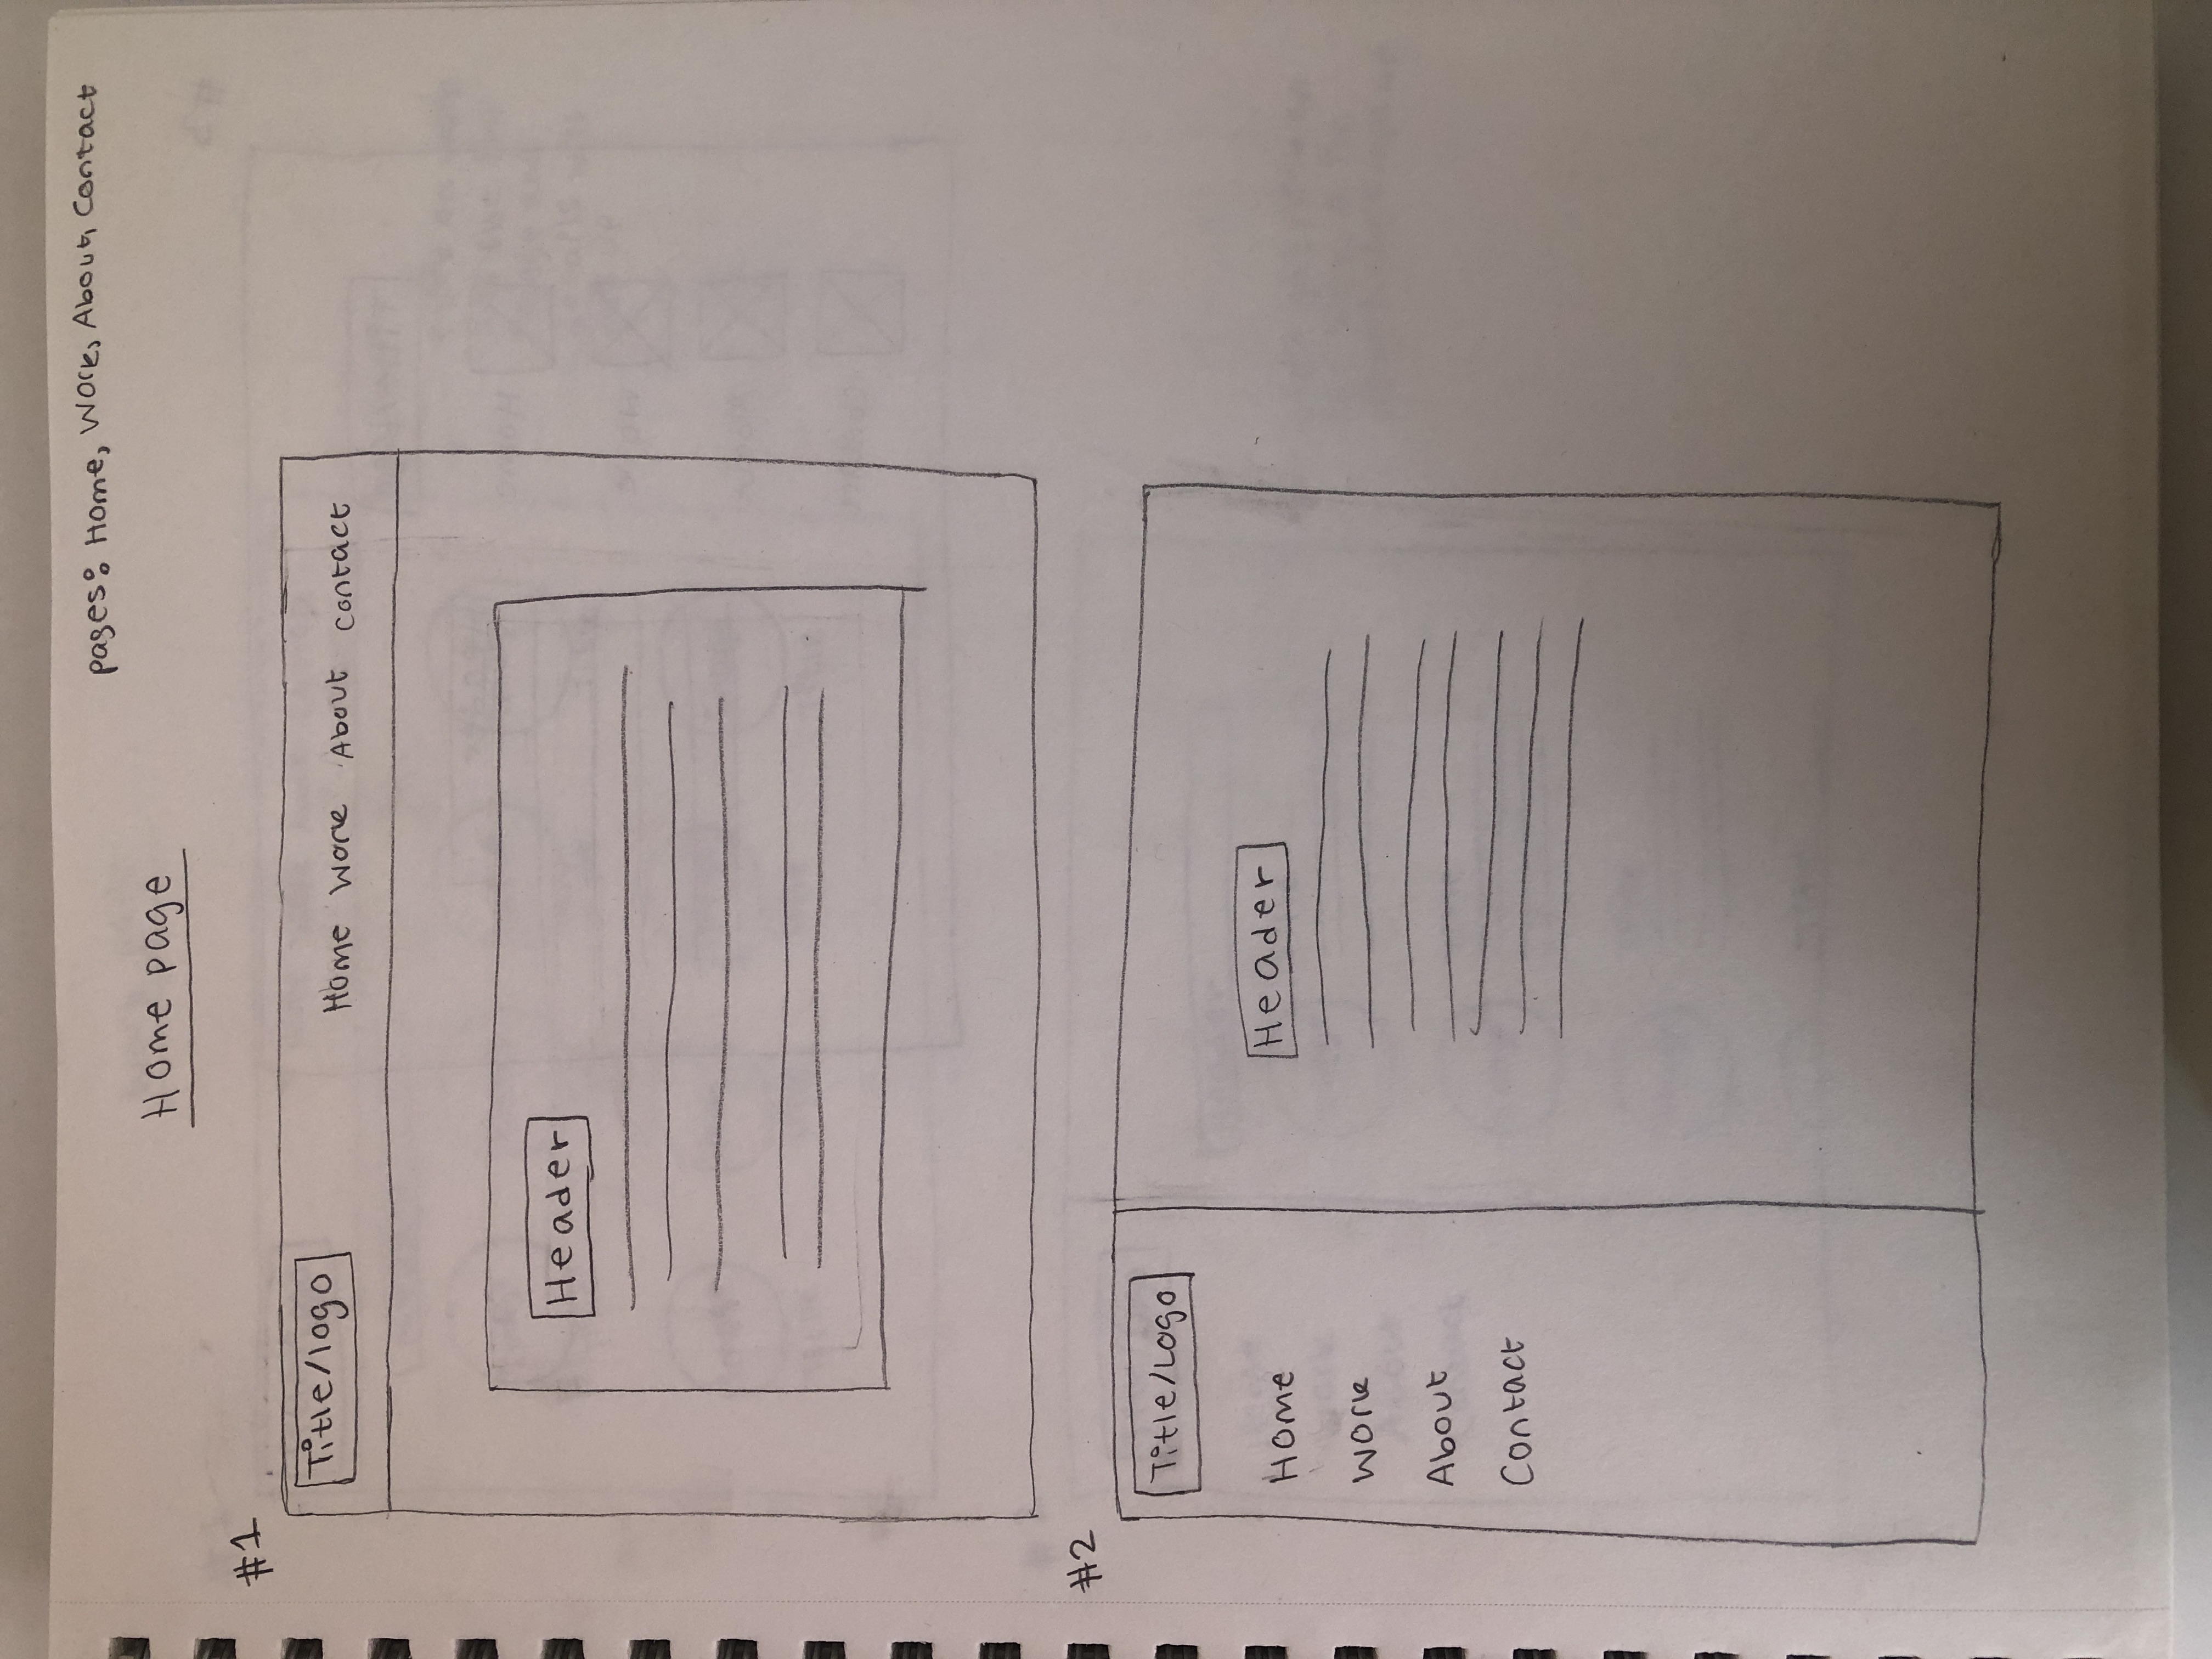 pages: Home, Work, About, Contact
Home page
#1
Title/logo
Home Work About contact
Header
#2
Title/Logo
Home
Work
About
Contact
Header